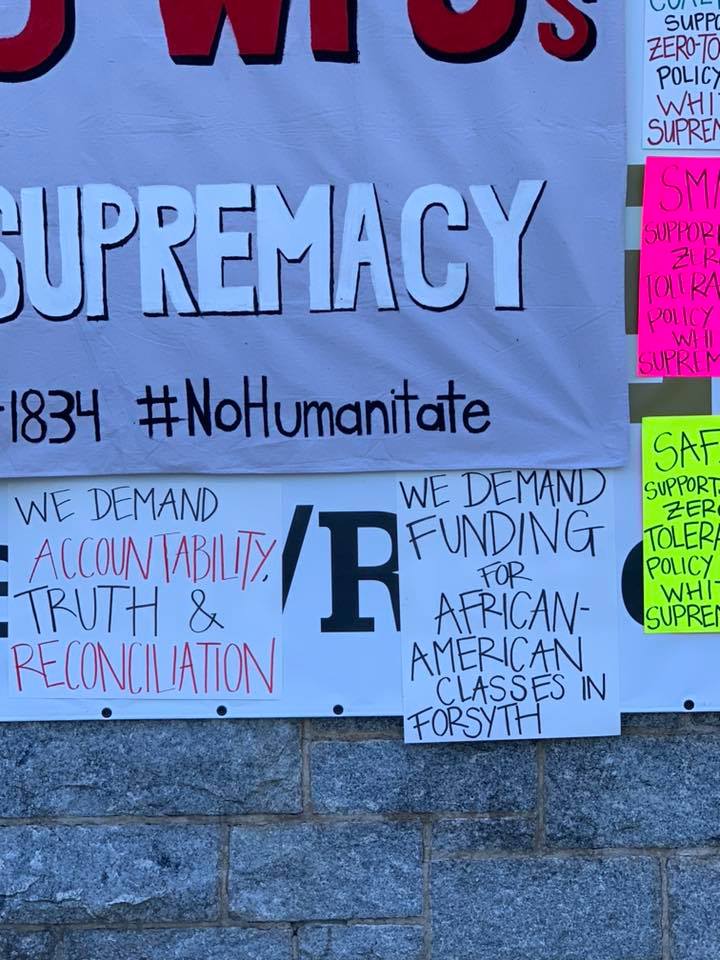 WFU's
SUPREMACY
1834 #NoHumanitate
WE DEMAND
ACCOUNTABILITY,
TRUTH &
RECONCILIATION
WE DEMAND
FUNDING
FOR
AFRICAN-
AMERICAN
CLASSES IN
FORSYTH
/R
SUPPO
ZERO-TO
POLICY
WHI
SUPREM
SMA
SUPPOR
ZER
TOLERA
POLICY
WHI
SUPREM
SAF
SUPPORT
ZERO
TOLERA
POLICY
WHI
SUPREM